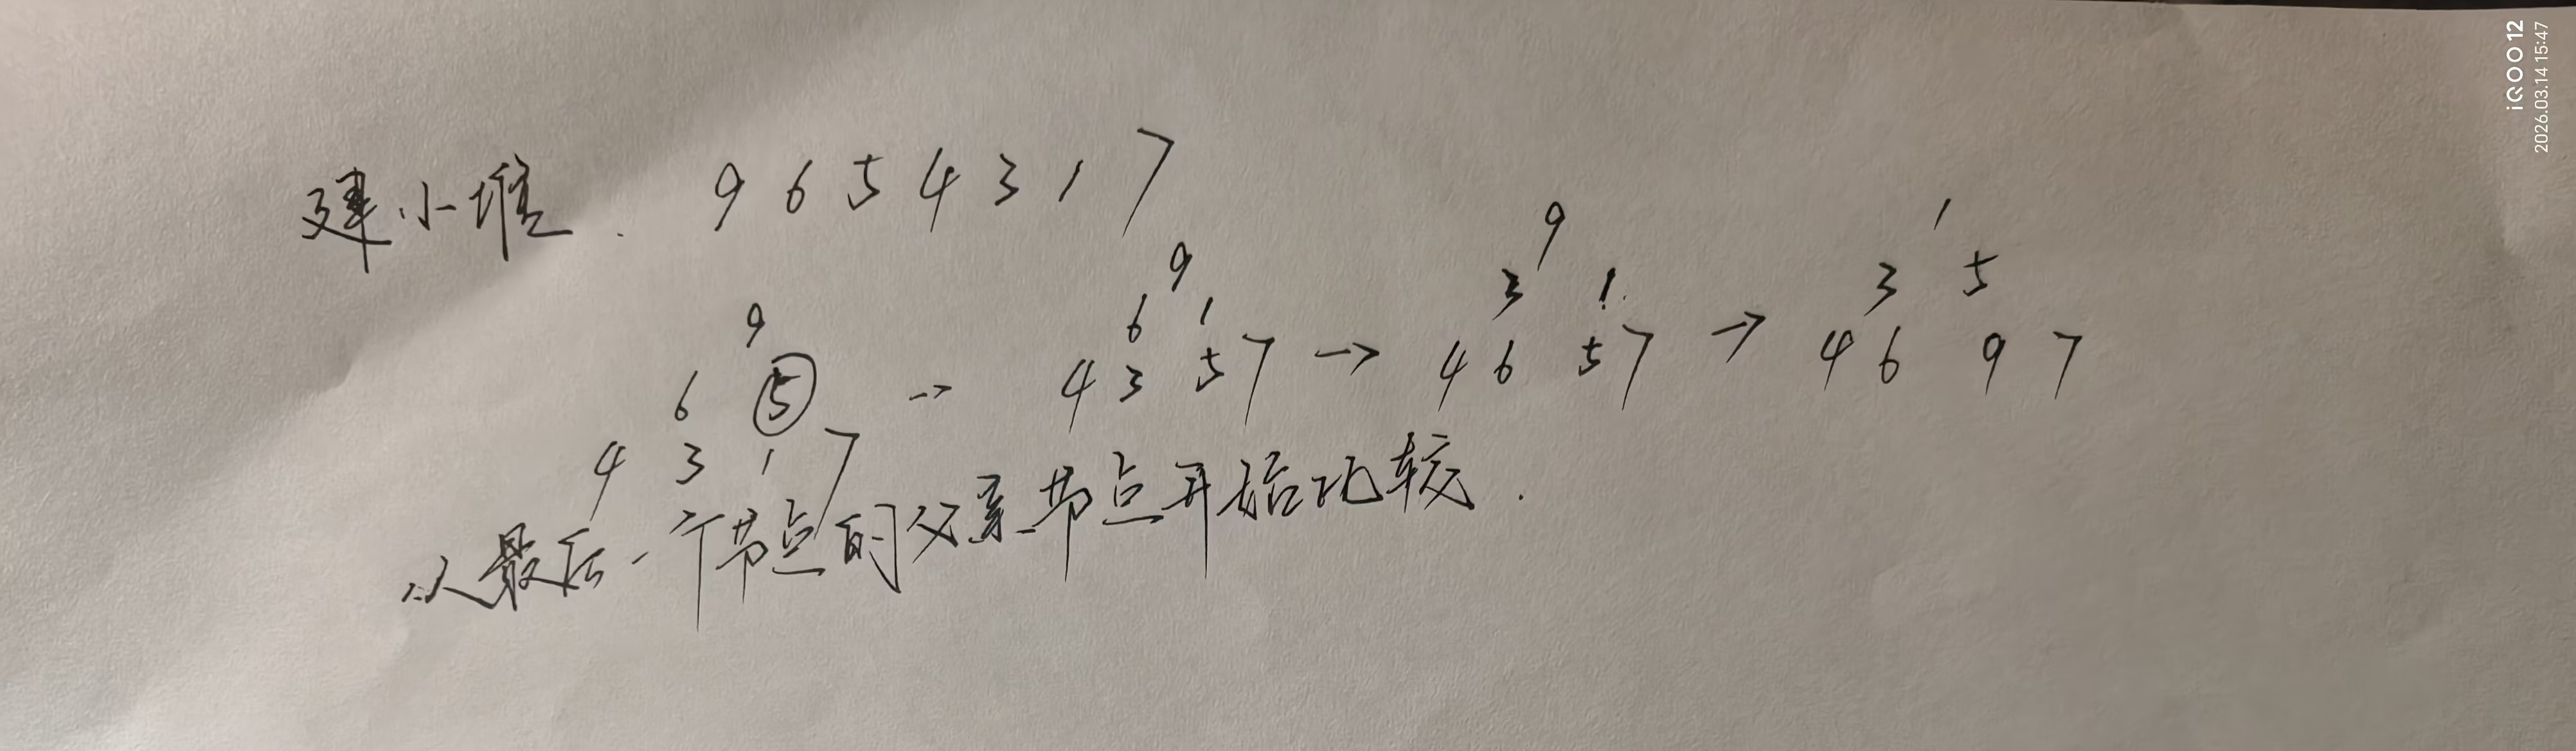 建小堆. 9 6 5 4 3 1 7
9
6 5
4 3 1 7
→
9
6 1
4 3 5 7
→
9
3 1
4 6 5 7
→
1
3 5
4 6 9 7
从最后一个节点的父亲节点开始比较.
iQOO12
2026.03.14 15:47